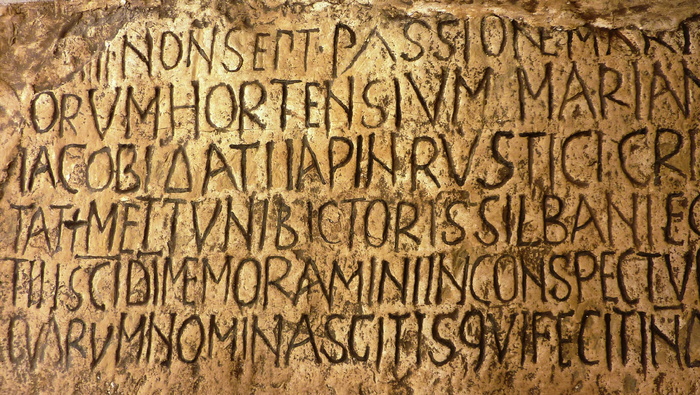 IIII NON SEPT · PASSIONE MARTI
ORVM HORTENSIVM MARIAN
IACOBI DATI IAPIN RVSTICI CRI
TAT + METTVNI BICTORIS SILBANI E
TII SCI DI MEMORAMINI IN CONSPECTV
QVORVM NOMINA SCITIS QVI FECIT IN